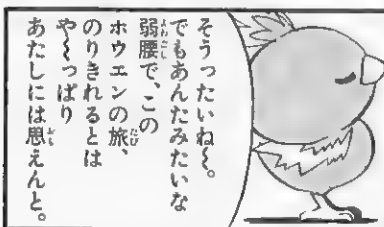 そうったいね～。
でもあんたみたいな
弱腰で、この
ホウエンの旅、
のりきれるとは
や～っぱり
あたしには思えんと。